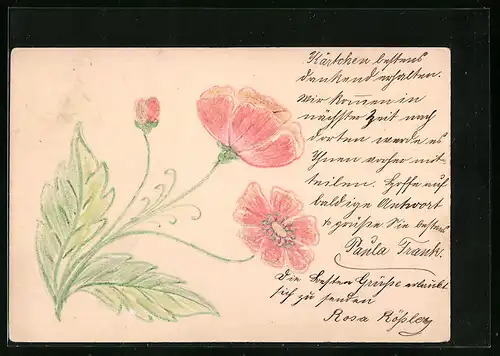 Kärtchen bestens
dankend erhalten.
Wir kommen in
nächster Zeit nach
dorten werde es
Ihnen vorher mit-
teilen. Hoffe auf
baldige Antwort
& grüße Sie bestens
Paula Frank.
Die besten Grüße erlaubt
sich zu senden
Rosa Rößler